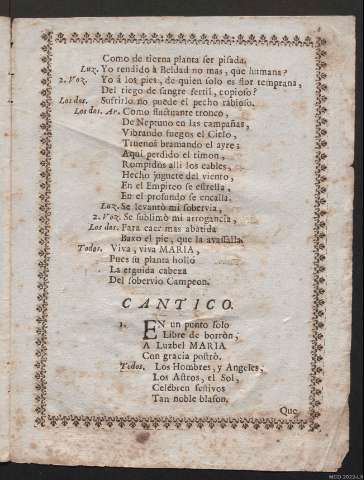 Como de tierna planta ser pisada.
Luz. Yo rendido à Beldad no mas, que humana?
2. Voz. Yo à los pies, de quien solo es flor temprana,
Del riego de sangre fertil, copioso?
Los dos. Sufrirlo no puede el pecho rabioso.
Los dos. Ar. Como fluctuante tronco,
De Neptuno en las campañas,
Vibrando fuegos el Cielo,
Truenos bramando el ayre;
Aqui perdido el timon,
Rompidos alli los cables,
Hecho juguete del viento,
En el Empireo se estrella,
En el profundo se encalla.
Luz. Se levantò mi sobervia,
2. Voz. Se sublimò mi arrogancia,
Los dos. Para caer mas abatida
Baxo el pie, que la avassalla.
Todos. Viva, viva MARIA,
Pues su planta hollò
La erguida cabeza
Del sobervio Campeon.
CANTICO.
1. EN un punto solo
Libre de borròn,
A Luzbel MARIA
Con gracia postrò.
Todos. Los Hombres, y Angeles,
Los Astros, el Sol,
Celèbren festivos
Tan noble blason.
Que